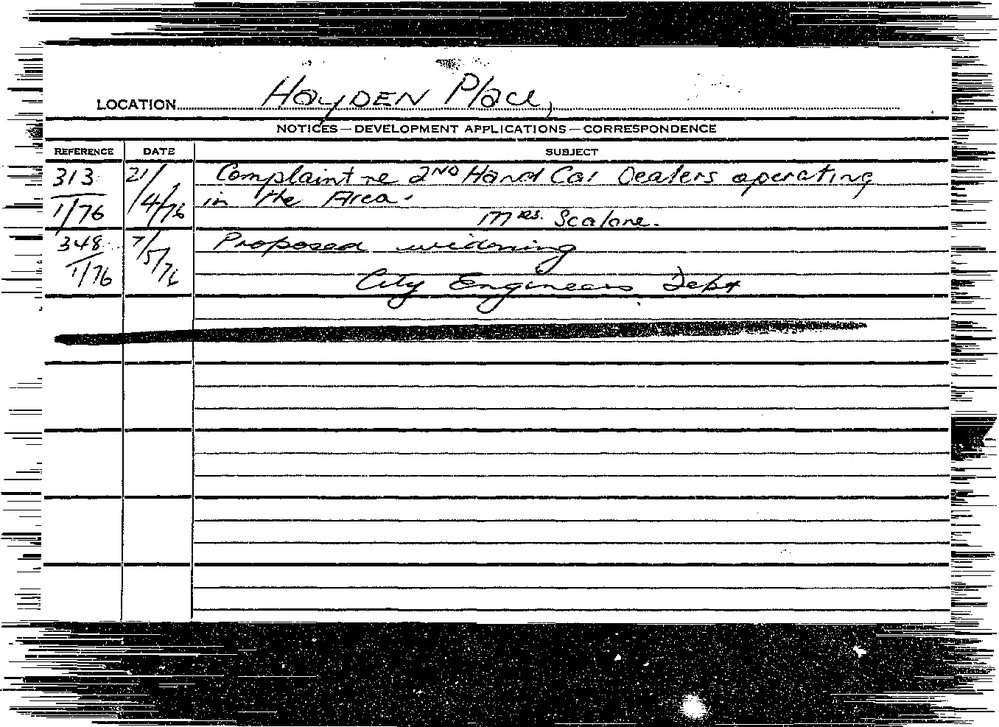 LOCATION Hayden Place,
NOTICES — DEVELOPMENT APPLICATIONS — CORRESPONDENCE
REFERENCE DATE SUBJECT
313 1/76 21/4/76 Complaint re 2ND Hand Car Dealers operating
in the Area.
MRS. Scalone.
348 1/76 7/5/76 Proposed widening
City Engineers Dept